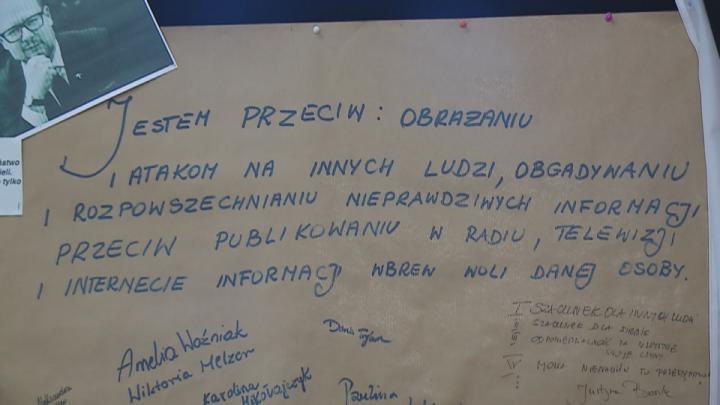 JESTEM PRZECIW: OBRAZANIU
I ATAKOM NA INNYCH LUDZI, OBGADYWANIU
I ROZPOWSZECHNIANIU NIEPRAWDZIWYCH INFORMACJI
PRZECIW PUBLIKOWANIU W RADIU, TELEWIZJI
I INTERNECIE INFORMACJI WBREW WOLI DANEJ OSOBY.
Amelia Woźniak
Wiktoria Melzer
Karolina
Mikołajczyk
Paulina
I SZACUNEK DLA INNYCH LUDZI
SZACUNEK DLA SIEBIE
ODPOWIEDZIALNOŚĆ ZA WSZYSTKIE
SWOJE CZYNY
MOWA NIENAWIŚCI TO
Justyna
tylko